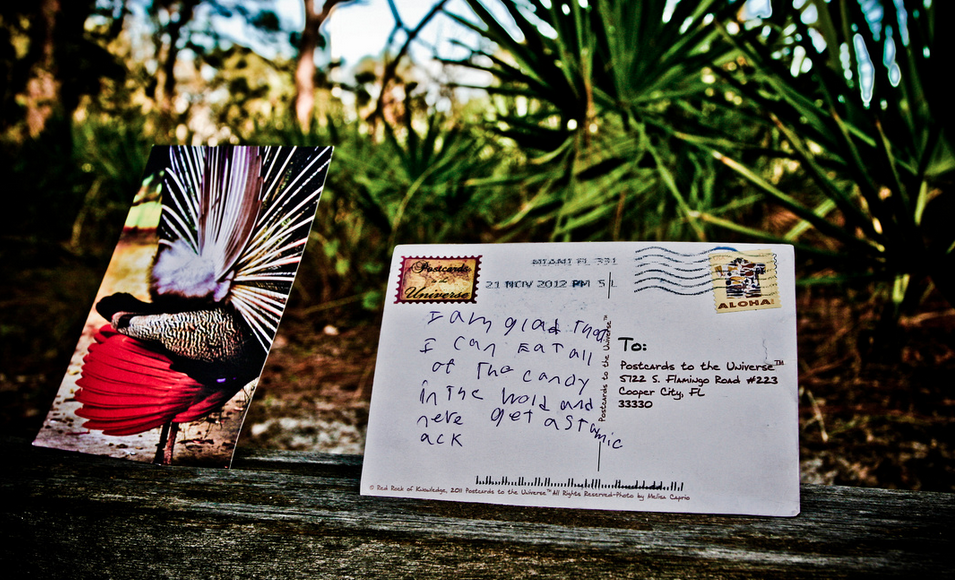 Postcards
to the
Universe
MIAMI FL 331
21 NOV 2012 PM 5 L
ALOHA!
I am glad that
I can EAT all
of The candy
in The world and
neve get a STumic
ack
Postcards to the Universe™
To:
Postcards to the Universe™
5722 S. Flamingo Road #223
Cooper City, FL
33330
© Red Rock of Knowledge, 2011 Postcards to the Universe™ All Rights Reserved-Photo by Melisa Caprio